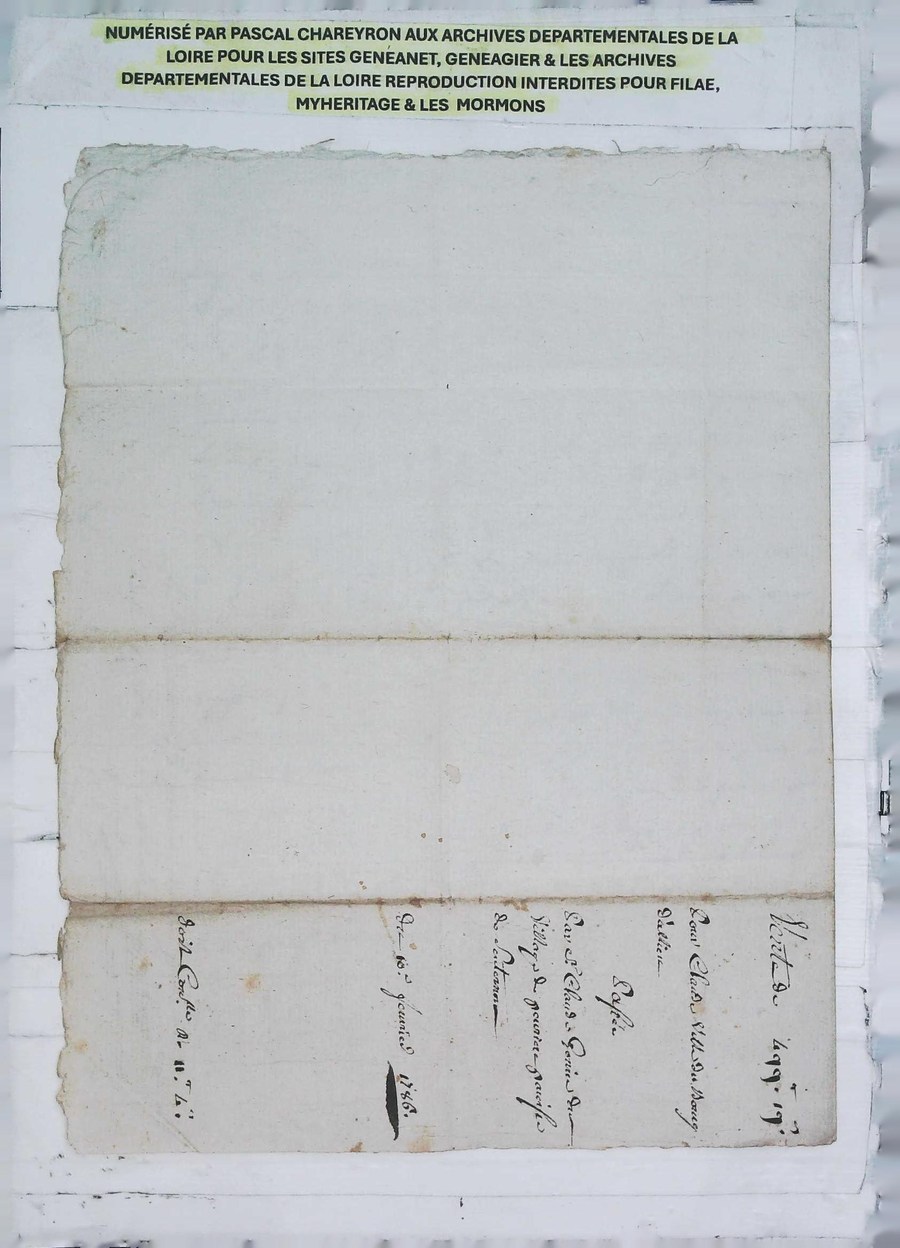 NUMÉRISÉ PAR PASCAL CHAREYRON AUX ARCHIVES DEPARTEMENTALES DE LA
LOIRE POUR LES SITES GENEANET, GENEAGIER & LES ARCHIVES
DEPARTEMENTALES DE LA LOIRE REPRODUCTION INTERDITES POUR FILAE,
MYHERITAGE & LES MORMONS
Vente de 499
Pour Claude du Bourg
Dallieu
Passée
Par Sr Claude Gonin du
village de paroisse
de Souternon
Du 10e Janvier 1786.
doit